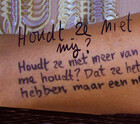 Houdt ze niet
mij?
Houdt ze niet meer van
me houdt? Dat ze het
hebben, maar een